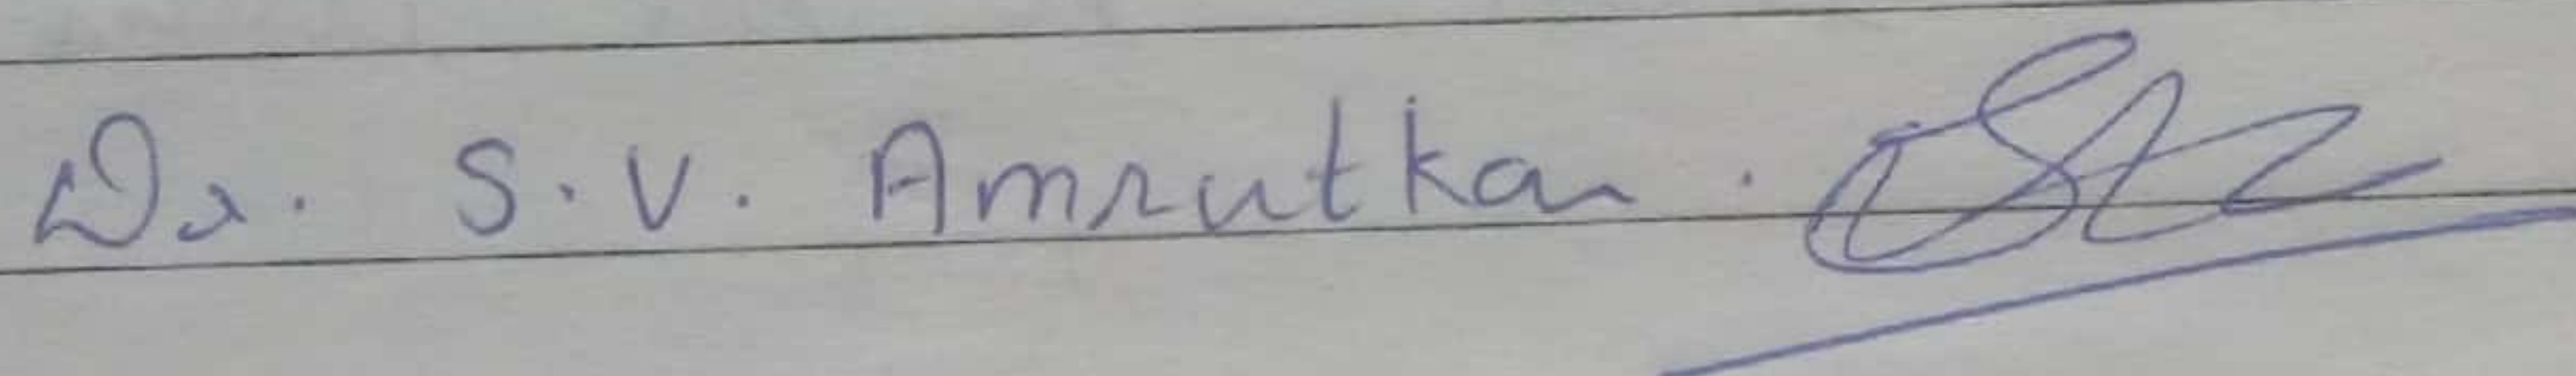 Dr. S. V. Amrutkar.